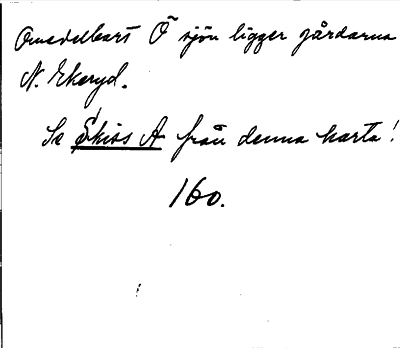 Omedelbart Ö sjön ligger gårdarna
N. Ekeryd.
Se Skiss A från denna karta!
160.